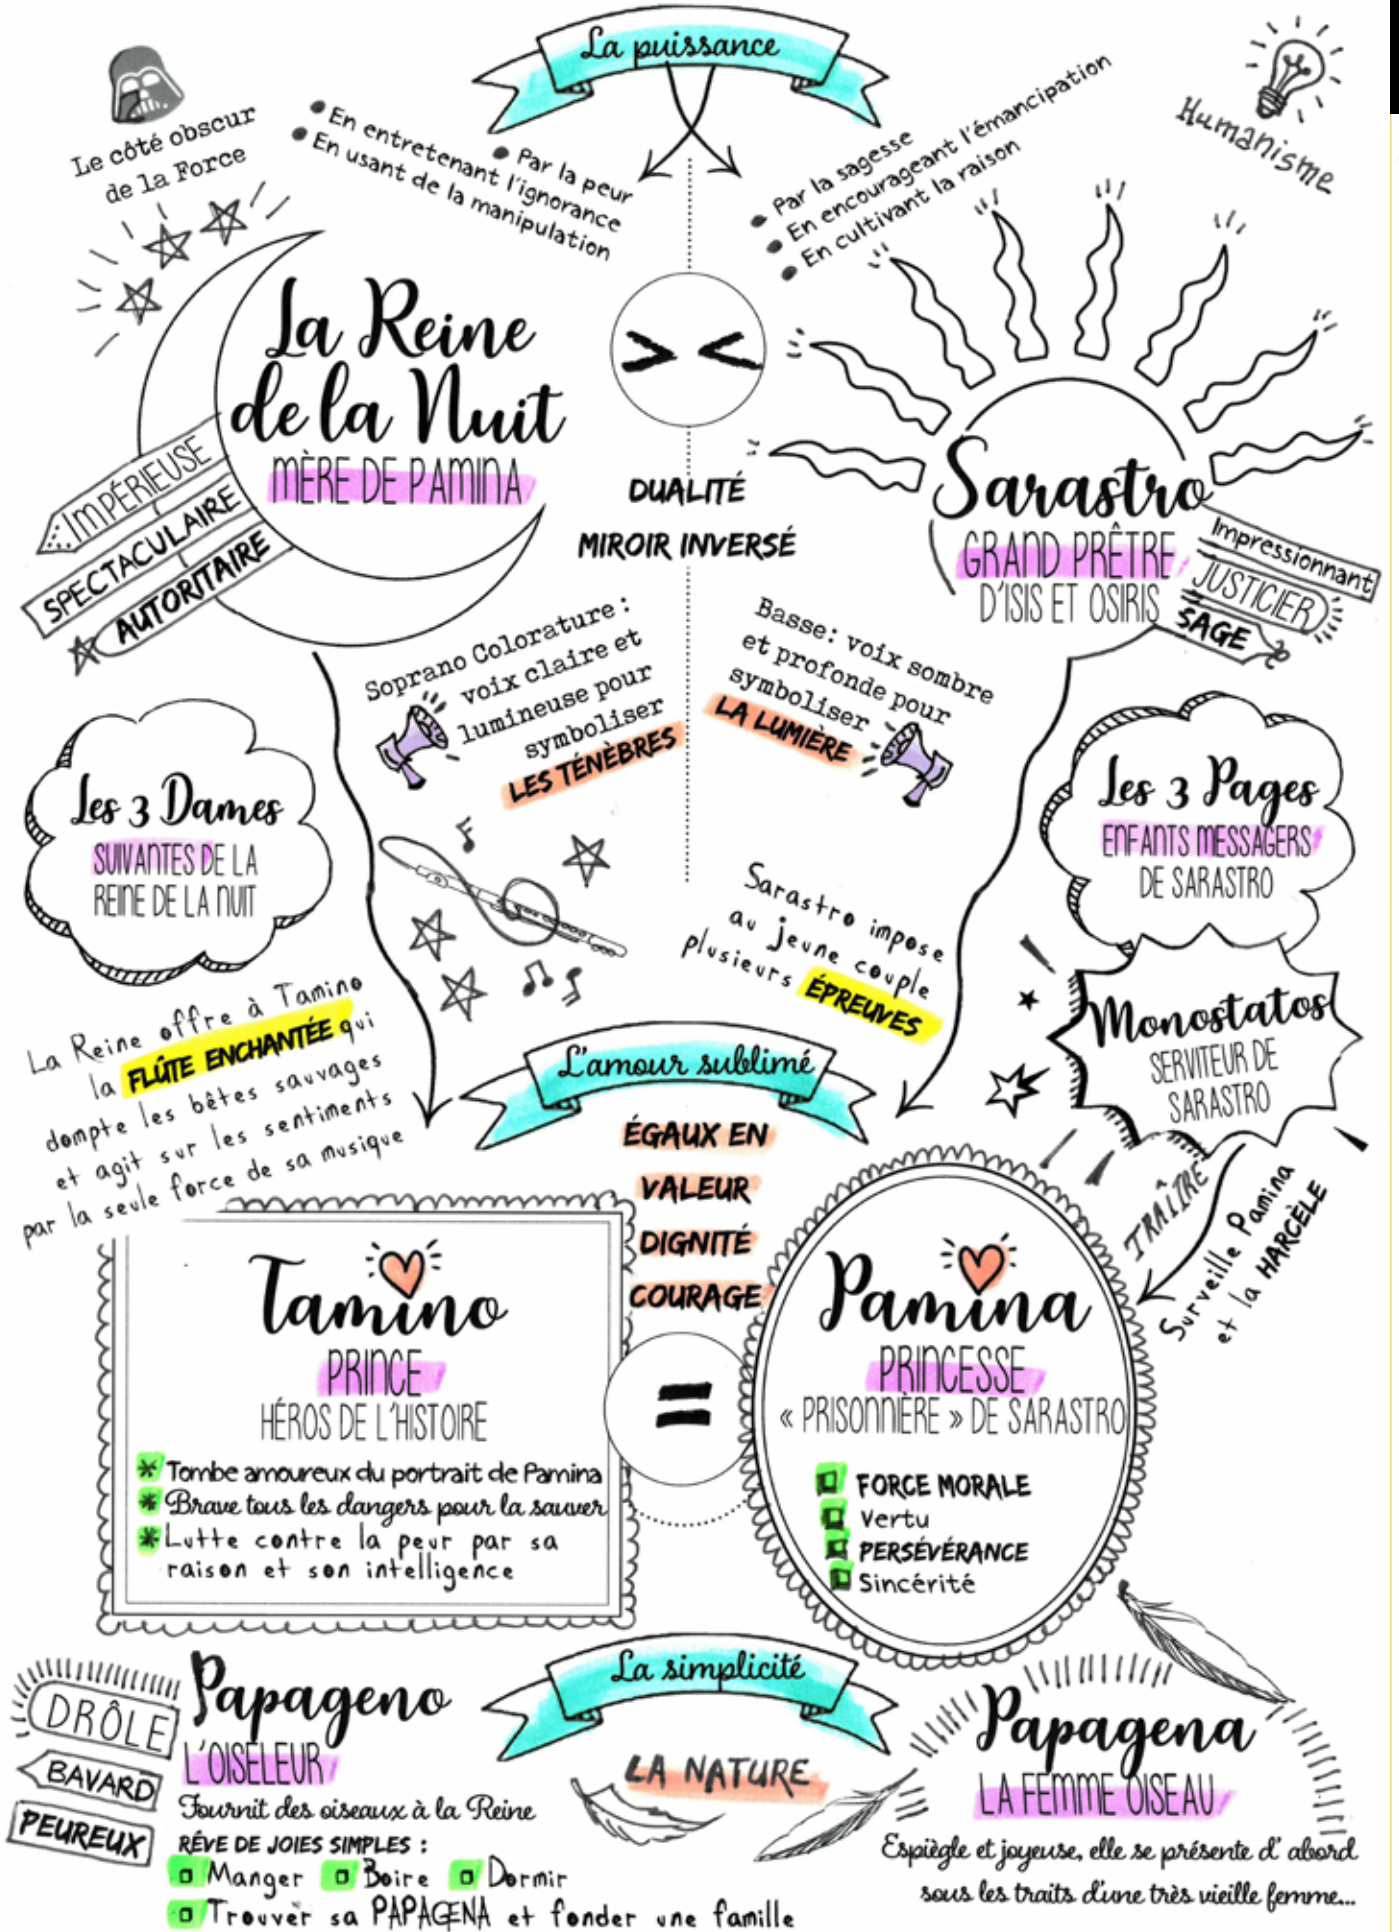 La puissance
Le côté obscur
de la Force
Par la peur
En entretenant l'ignorance
En usant de la manipulation
Par la sagesse
En encourageant l'émancipation
En cultivant la raison
Humanisme
La Reine
de la Nuit
MÈRE DE PAMINA
IMPÉRIEUSE
SPECTACULAIRE
AUTORITAIRE
> <
DUALITÉ
MIROIR INVERSÉ
Sarastro
GRAND PRÊTRE
D'ISIS ET OSIRIS
Impressionnant
JUSTICIER
SAGE
Soprano Colorature :
voix claire et
lumineuse pour
symboliser
LES TÉNÈBRES
Basse: voix sombre
et profonde pour
symboliser
LA LUMIÈRE
Les 3 Dames
SUIVANTES DE LA
REINE DE LA NUIT
Les 3 Pages
ENFANTS MESSAGERS
DE SARASTRO
Monostatos
SERVITEUR DE
SARASTRO
TRAÎTRE
Surveille Pamina
et la HARCÈLE
La Reine offre à Tamino
la FLÛTE ENCHANTÉE qui
dompte les bêtes sauvages
et agit sur les sentiments
par la seule force de sa musique
Sarastro impose
au jeune couple
plusieurs ÉPREUVES
L'amour sublimé
ÉGAUX EN
VALEUR
DIGNITÉ
COURAGE
=
Tamino
PRINCE
HÉROS DE L'HISTOIRE
Tombe amoureux du portrait de Pamina
Brave tous les dangers pour la sauver
Lutte contre la peur par sa
raison et son intelligence
Pamina
PRINCESSE
« PRISONNIÈRE » DE SARASTRO
FORCE MORALE
Vertu
PERSÉVÉRANCE
Sincérité
La simplicité
LA NATURE
DRÔLE
BAVARD
PEUREUX
Papageno
L'OISELEUR
Fournit des oiseaux à la Reine
RÊVE DE JOIES SIMPLES :
Manger Boire Dormir
Trouver sa PAPAGENA et fonder une famille
Papagena
LA FEMME OISEAU
Espiègle et joyeuse, elle se présente d' abord
sous les traits d'une très vieille femme...